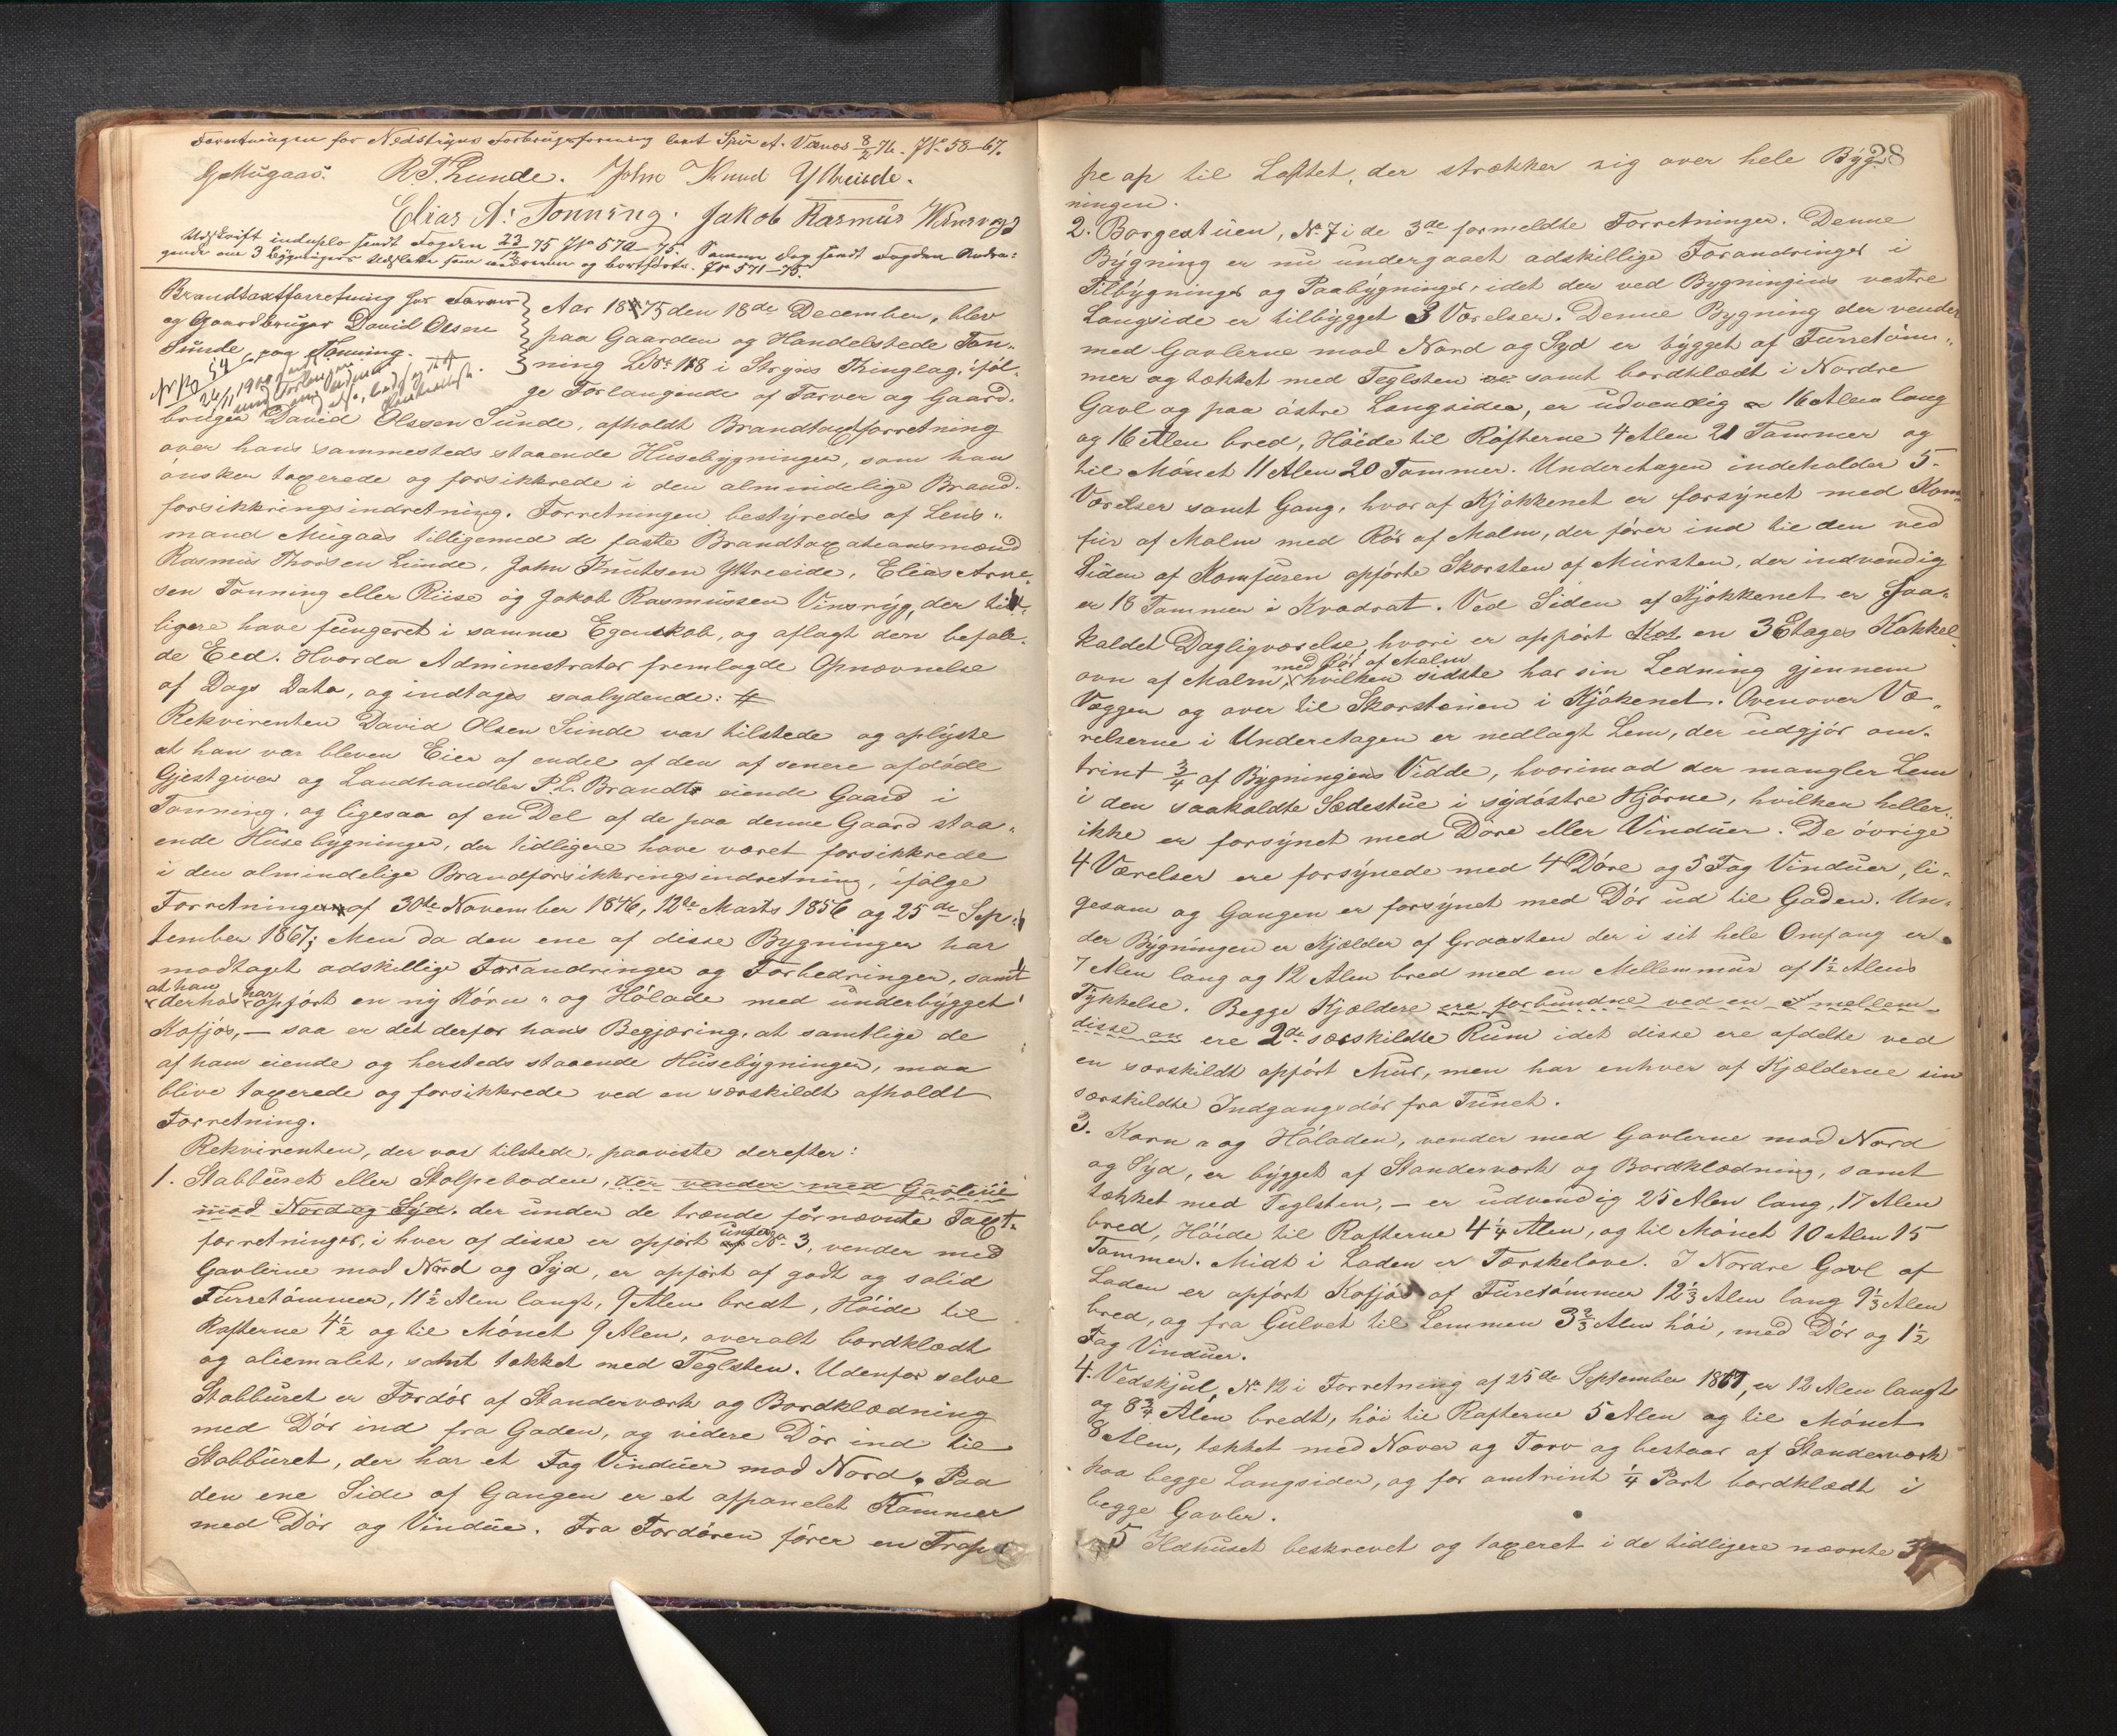 Forretningen for Nedstryns Forbrugsforening sendt A. Vænes 8/2 76. J№ 58-67.
G. Mugaas. R. T. Lunde. John Knud Ytreeide.
Elias A. Tonning. Jakob Rasmus Winsrygg
Udskrift induplo sendt Fogden 23/12 75 J№ 570-75. Samme Dag sendt Fogden Andra-
gende om 3 Bygningers Udslettelse som nedrevne og bortførte. J№ 571-75.
Brandtaxtforretning for Farver
og Gaardbruger David Olsen
Sunde paa Tonning.
Aar 1875 den 18de December, blev
paa Gaarden og Handelstede Ton-
ning LNo 118 i Stryns Thinglag, iføl-
ge Forlangende af Farver og Gaard-
bruger David Olssen Sunde, afholdt Brandtaxtforretning
over hans sammesteds staaende Husebygninger, som han
ønsker taxerede og forsikkrede i den almindelige Brand-
forsikkringsindretning. Forretningen bestyredes af Lens-
mand Mugaas tilligemed de faste Brandtaxationsmænd
Rasmus Thorsen Lunde, John Knutsen Ytreeide, Elias Arne-
sen Tonning eller Riise og Jakob Rasmussen Vinsryg, der tid-
ligere have fungeret i samme Egenskab, og aflagt den befale-
de Eed. Hvorda Administrator fremlagde Opnævnelse
af Dags Dato, og indtages saalydende: #
Rekvirenten David Olsen Sunde var tilstede og oplyste
at han var bleven Eier af endel af den af senere afdøde
Gjestgiver og Landhandler P. L. Brandt eiende Gaard i
Tonning, og ligesaa af en Del af de paa denne Gaard staa-
ende Husebygninger, der tidligere have været forsikkrede
i den almindelige Brandforsikkringsindretning, ifølge
Forretninger af 30te November 1846, 12te Marts 1856 og 25de Sep-
tember 1867; Men da den ene af disse Bygninger har
modtaget adskillige Forandringer og Forbedringer, samt
at han derhos har opført en ny Korn- og Hølade med underbygget
Kofjøs, — saa er det derfor hans Begjæring, at samtlige de
af ham eiende og hersteds staaende Husebygninger, maa
blive taxerede og forsikkrede ved en særskildt afholdt
Forretning.
Rekvirenten, der var tilstede, paaviste derefter:
1. Stabburet eller Stolpeboden, der vender med Gavlerne
mod Nord og Syd. der under de trende førnævnte Taxt-
forretninger, i hver af disse er opført under No 3, vender med
Gavlerne mod Nord og Syd, er opført af godt og solid
Furretømmer, 11½ Alen langt, 9 Alen bredt, Høide til
Rafterne 4½ og til Mønet 9 Alen, overalt bordklædt
og oliemalet, samt tækket med Teglsten. Udenfor selve
Stabburet er Fordør af Standerværk og Bordklædning
med Dør ind fra Gaden, og videre Dør ind til
Stabburet, der har et Fag Vinduer mod Nord. Paa
den ene Side af Gangen er et afpanelet Kammer
med Dør og Vindue. Fra Fordøren fører en Trap-
28
pe op til Loftet, der strækker sig over hele Byg-
ningen.
2. Borgestuen, No 7 i de 3de formeldte Forretninger. Denne
Bygning er nu undergaaet adskillige Forandringer i
Tilbygninger og Paabygninger, idet der ved Bygningens vestre
Langside er tilbygget 3 Værelser. Denne Bygning der vender
med Gavlerne mod Nord og Syd er bygget af Furretøm-
mer og tækket med Teglsten samt bordklædt i Nordre
Gavl og paa østre Langside, er udvendig 16 Alen lang
og 16 Alen bred, Høide til Rafterne 4 Alen 21 Tommer og
til Mønet 11 Alen 20 Tommer. Underetagen indeholder 5
Værelser samt Gang, hvoraf Kjøkkenet er forsynet med Kom-
fur af Malm med Rør af Malm, der fører ind til den ved
Siden af Komfuren opførte Skorsten af Mursten, der indvendig
er 18 Tommer i Kvadrat. Ved Siden af Kjøkkenet er saa-
kaldet Dagligværelse, hvori er opført en 3 Etages Kakkel-
ovn af Malm, med Rør af Malm hvilken sidste har sin Ledning gjennem
Væggen og over til Skorstenen i Kjøkenet. Ovenover Væ-
relserne i Underetagen er nedlagt Lem, der udgjør om-
trint ¾ af Bygningens Vidde, hvorimod der mangler Lem
i den saakaldte Sædestue i sydøstre Hjørne, hvilken heller
ikke er forsynet med Døre eller Vinduer. De øvrige
4 Værelser ere forsynede med 4 Døre og 5 Fag Vinduer, li-
gesom og Gangen er forsynet med Dør ud til Gaden. Un-
der Bygningen er Kjælder af Graasten der i sit hele Omfang er
7 Alen lang og 12 Alen bred med en Mellemmur af 1½ Alens
Tykkelse. Begge Kjældere ere forbundne ved en Imellem-
disse ere 2de særskildte Rum idet disse ere afdelte ved
en særskildt opført Mur, men har enhver af Kjælderne sin
særskildte Indgangsdør fra Tunet.
3. Korn- og Høladen, vender med Gavlerne mod Nord
og Syd, er bygget af Standerværk og Bordklædning, samt
tækket med Teglsten, — er udvendig 25 Alen lang, 17 Alen
bred, Høide til Rafterne 4¼ Alen, og til Mønet 10 Alen 15
Tommer. Midt i Laden er Tærskelove. I Nordre Gavl af
Laden er opført Kofjøs af Furetømmer 12⅓ Alen lang 9⅓ Alen
bred, og fra Gulvet til Lemmen 3⅔ Alen høi, med Dør og 1½
Fag Vinduer.
4. Vedskjul, No 12 i Forretning af 25de September 1867, er 12 Alen langt
og 8¾ Alen bredt, høi til Rafterne 5 Alen og til Mønet
8 Alen, tækket med Næver og Torv og bestaar af Standerværk
paa begge Langsider, og for omtrint ¼ Part bordklædt i
begge Gavler.
5 Ildhuset beskrevet og taxeret i de tidligere nævnte 3